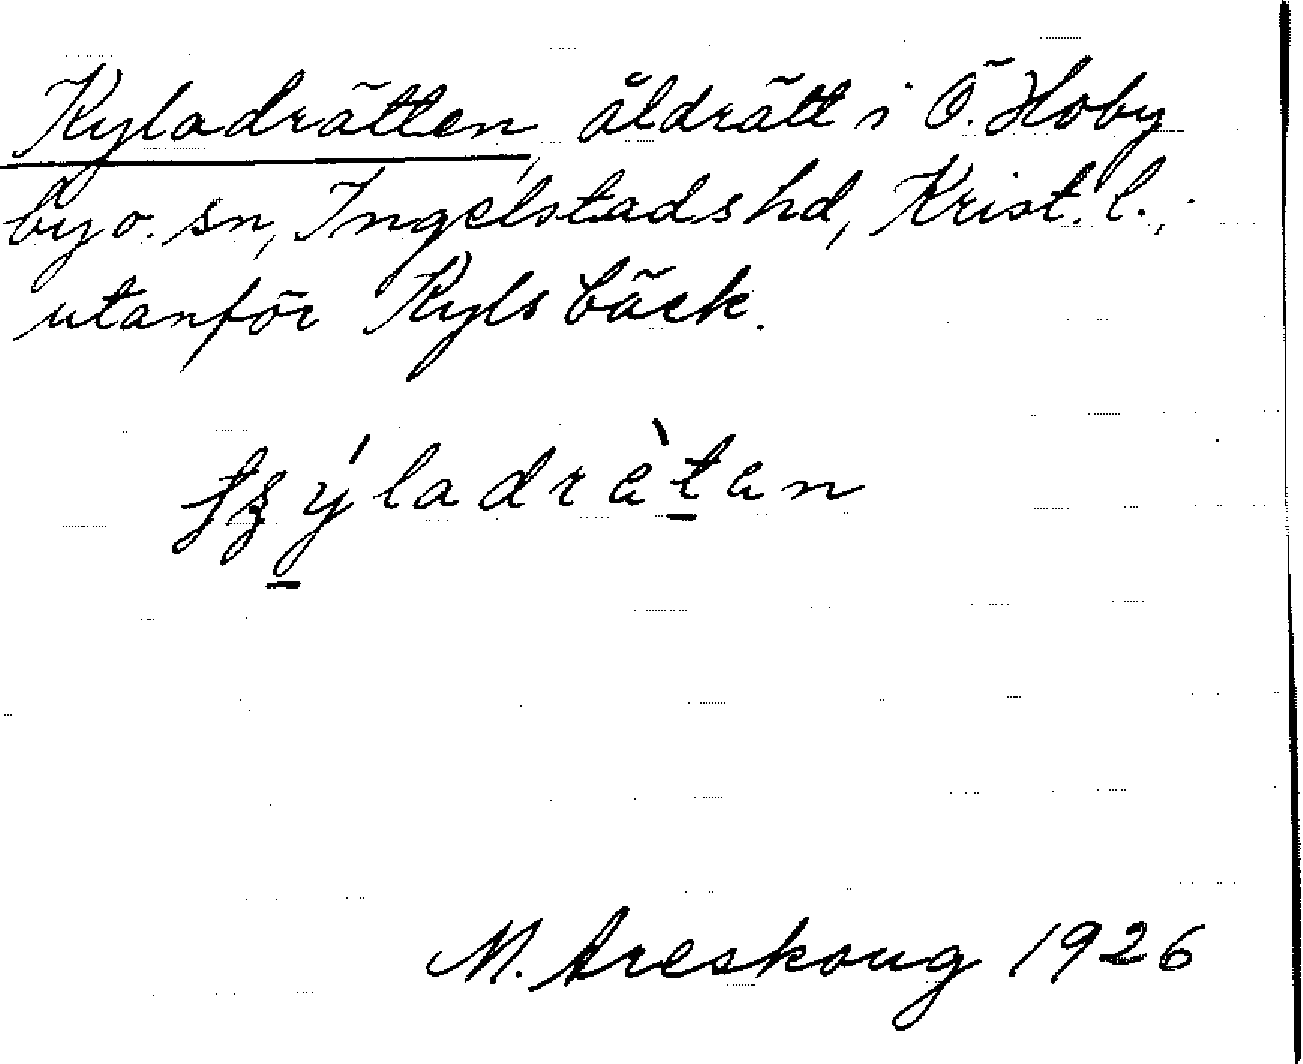 Kyladrätten, åldrätt i Ö. Hoby
by o. sn, Ingelstads hd, Krist. l.,
utanför Kyls bäck.
M. Areskoug 1926